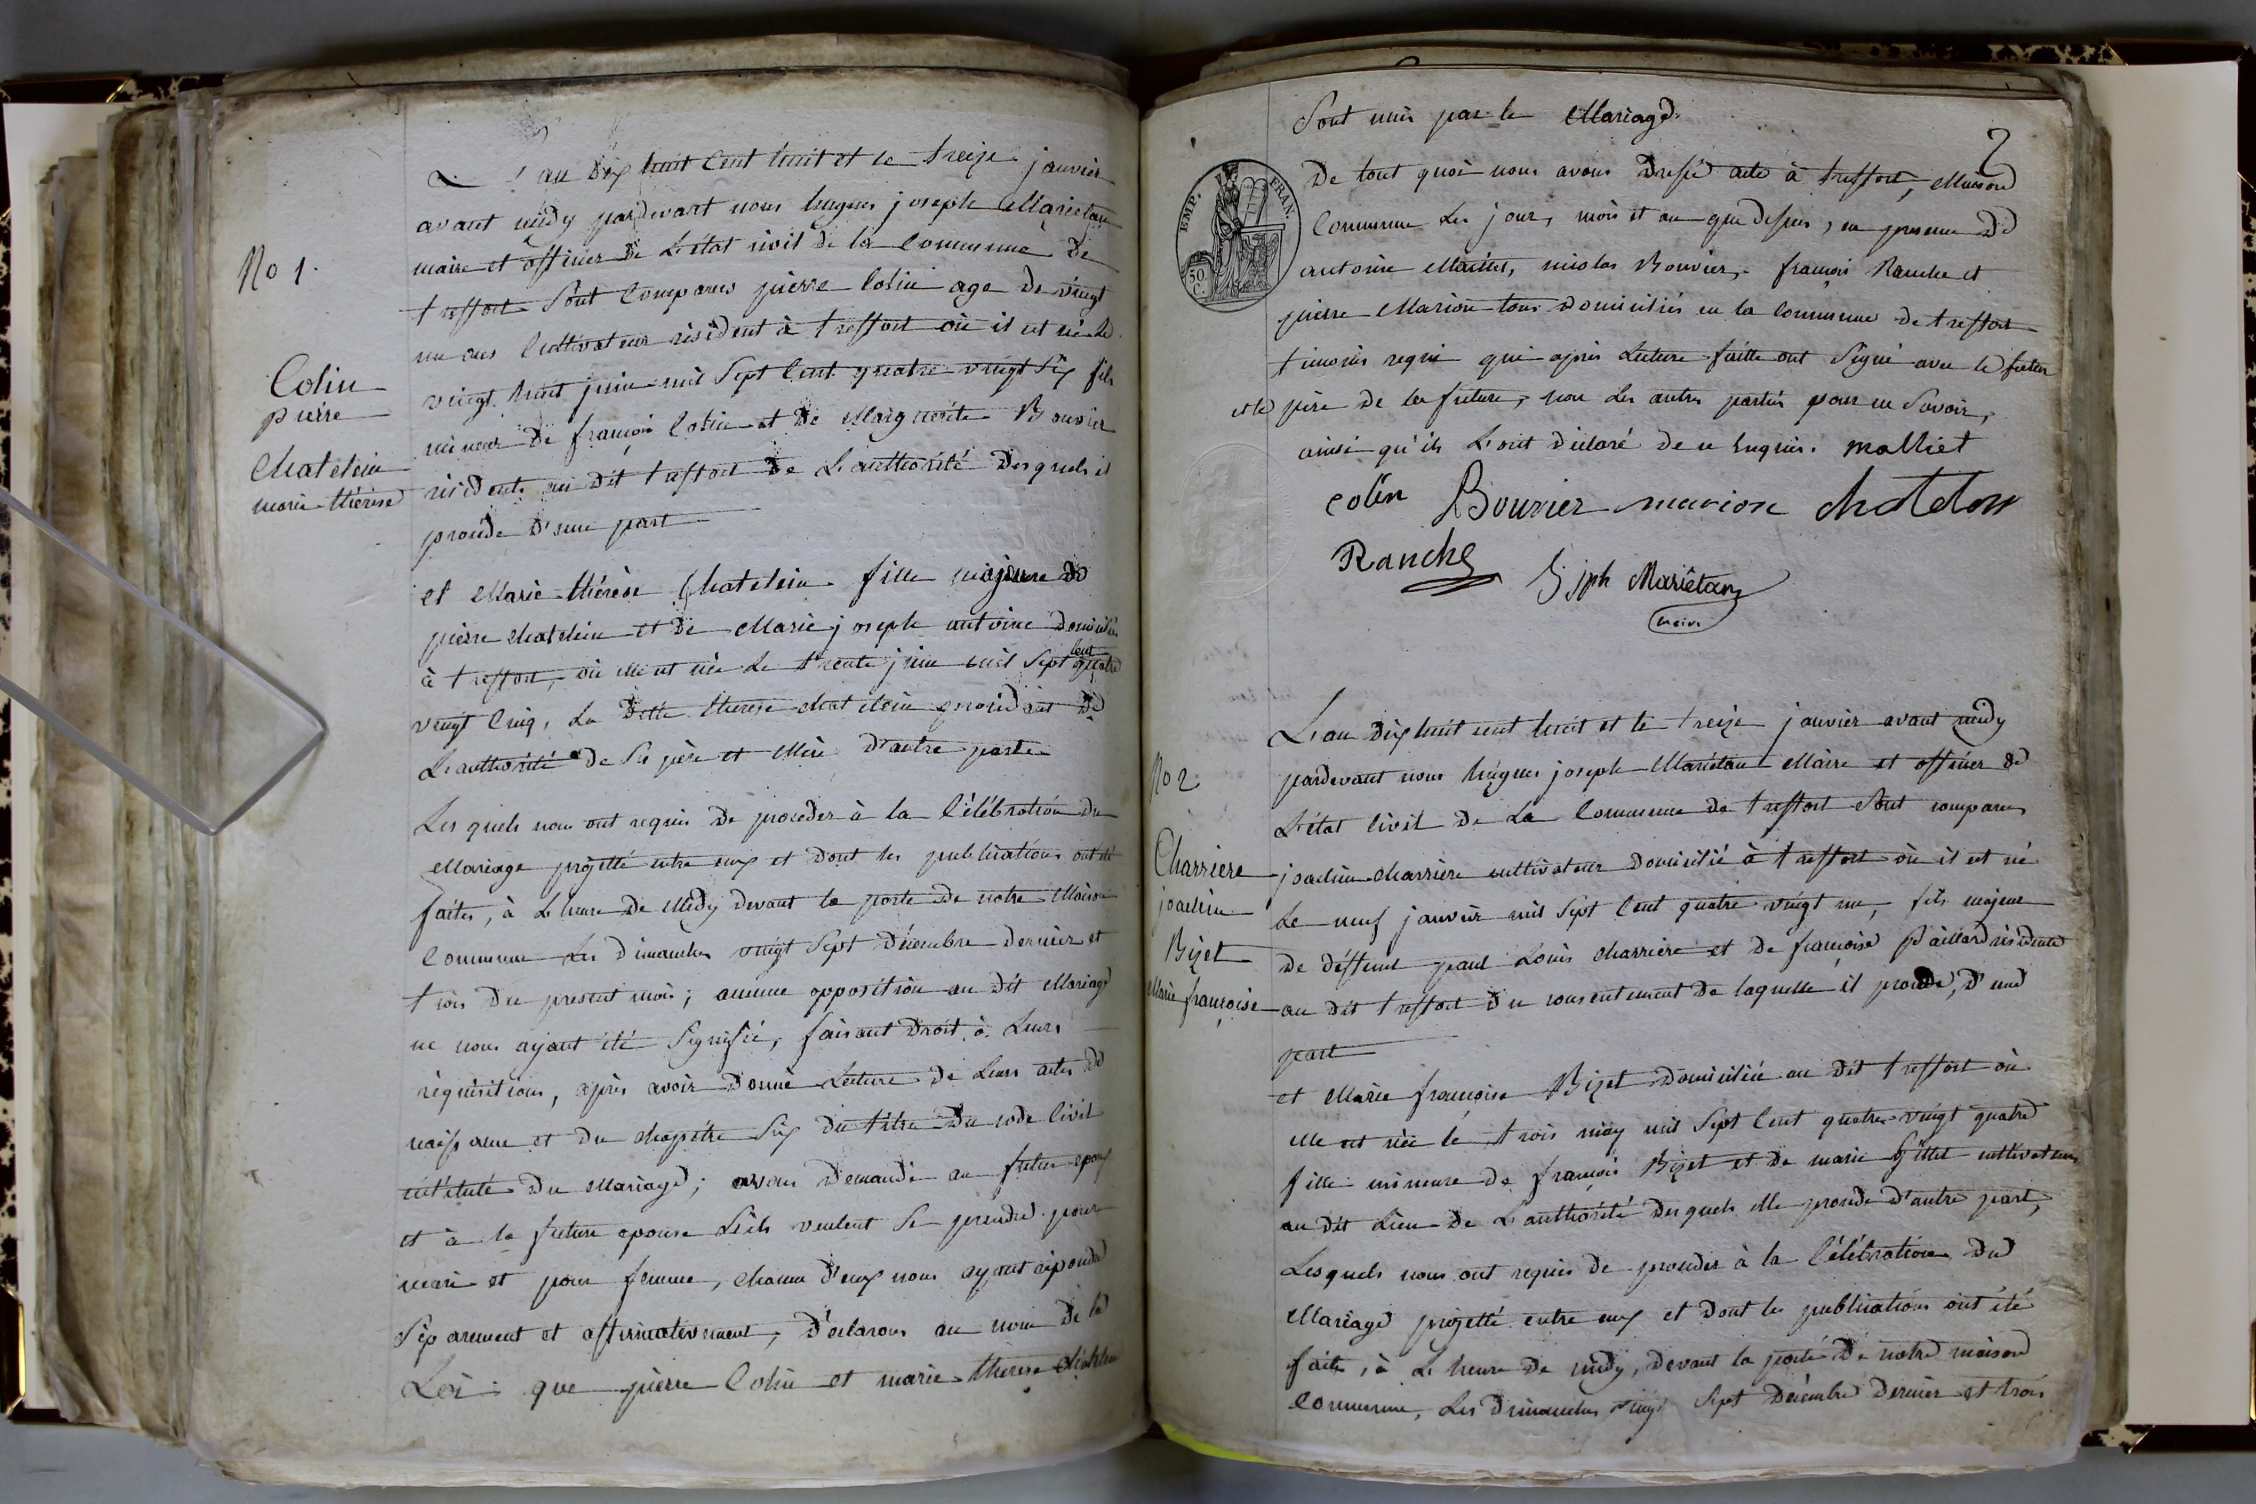 No 1.
Colin
pierre
Chatelein
marie thérèse
L'an dix huit Cent huit et le treize janvier
avant midy pardevant nous hugues joseph Mariétan
maire et officier de L'état civil de la Commune de
treffort Sont Comparus pierre Colin age de vingt
un ans Cultivateur résident à treffort où il est né le
vingt huit juin mil Sept Cent quatre vingt Six fils
mineur de françois Colin et de Marguerite Bouvier
résidents au dit treffort de L'authorité desquels il
procède d'une part
et Marie thérèse Chatelein fille majeure de
pierre chatelein et de Marie joseph antoine domiciliés
à treffort, où elle est née Le trente juin mil Sept Cent quatre
vingt Cinq, La ditte therese chatelein procédant de
L'authorité de Ses père et Mère d'autre part
Les quels nous ont requis de procéder à la Célébration du
Mariage projetté entre eux et dont les publications ont été
faites, à L'heure de Midy devant la porte de notre Maison
Commune Les dimanches vingt Sept Décembre dernier et
trois du present mois; aucune opposition au dit Mariage
ne nous ayant été Signifié, faisant Droit à Leurs
réquisitions, après avoir donné Lecture de Leurs actes de
naissance et du chapitre Six du titre du code Civil
intitulé du Mariage; avons demandé au futur epoux
et à la future epouse S'ils veulent Se prendre pour
mari et pour femme, chacun d'eux nous ayant répondu
Séparement et affirmativement, déclarons au nom de la
Loi que pierre Colin et marie therese Chatelein
2
Sont unis par le Mariage.
EMP. FRAN.
50 C.
De tout quoi nous avons dressé acte à treffort, Maison
Commune Les jour, mois et an que dessus, en presence de
antoine Malliet, nicolas Bouvier, françois Ranche et
pierre Marion tous domiciliés en la Commune de treffort
timoins requis qui après Lecture faitte ont Signé avec le futur
et le père de la future, non Les autres parties pour ne Savoir,
ainsi qu'ils L'ont déclaré de ce enquis. malliet
colin Bouvier marion chatelon
Ranche
h jph Mariétan
maire
No 2
Charriere
joachin
Bizet
Marie françoise
L'an dix huit cent huit et le treize janvier avant midy
pardevant nous hugues joseph Mariétan Maire et officier de
L'état Civil de La Commune de treffort Sont comparus
joachin charrière cultivateur domicilié à treffort où il est né
Le neuf janvier mil Sept Cent quatre vingt un, fils majeur
de deffunt paul Louis charrière et de françoise Paillard résidente
au dit treffort du consentement de laquelle il procède, d'une
part
et Marie françoise Bizet domiciliée au dit treffort où
elle est née le trois may mil Sept Cent quatre vingt quatre
fille mineure de françois Bizet et de marie Gillet cultivateurs
au dit Lieu de L'authorité desquels elle procède d'autre part,
Lesquels nous ont requis de procéder à la Célébration du
Mariage projetté entre eux et dont les publications ont été
faites, à L'heure de midy, devant la porte de notre maison
Commune, Les dimanches vingt Sept Décembre dernier et trois